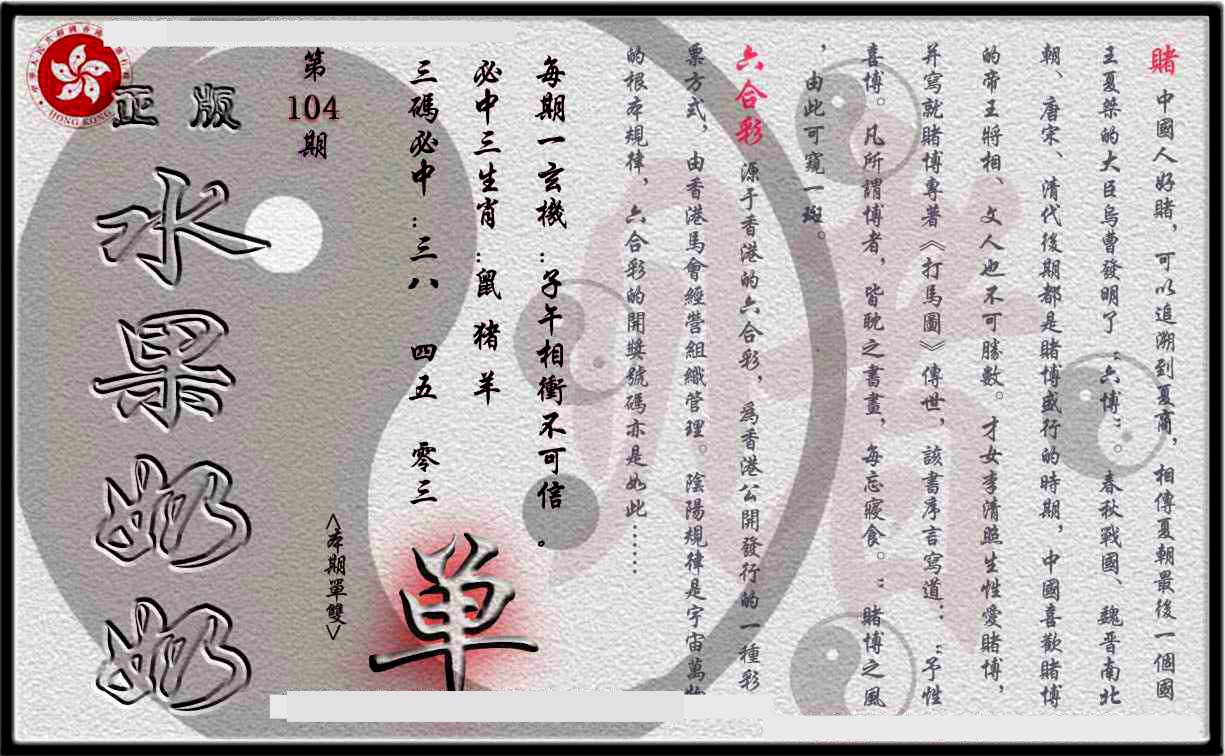 賭 中國人好賭，可以追溯到夏商，相傳夏朝最後一個國
王夏桀的大臣烏曹發明了“六博”。春秋戰國、魏晉南北
朝、唐宋、清代後期都是賭博盛行的時期，中國喜歡賭博
的帝王將相、文人也不可勝數。才女李清照生性愛賭博，
并寫就賭博專著《打馬圖》傳世，該書序言寫道：“予性
喜博。凡所謂博者，皆耽之書畫，每忘寢食。”賭博之風
，由此可窺一斑。
六合彩 源于香港的六合彩，為香港公開發行的一種彩
票方式，由香港馬會經營組織管理。陰陽規律是宇宙萬物
的根本規律，六合彩的開獎號碼亦是如此……
每期一玄機：子午相衝不可信。
必中三生肖：鼠 猪 羊
三碼必中：三八 四五 零三
单
<本期單雙>
第104期
正版
水果奶奶
HONG KONG